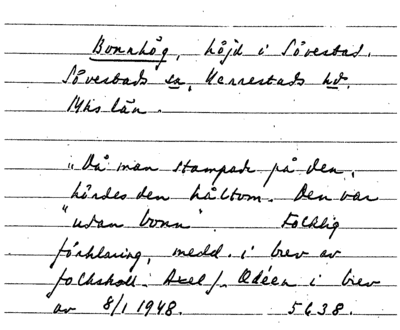 Bonnhög, höjd i Sövestad.
Sövestads sn, Herrestads hd.
Mhs län.
"Då man stampade på den,
hördes den håltom. Den var
"utan bonn". Folklig
förklaring, medd. i brev av
folkskoll. Axel f. Odéen i brev
av 8/1 1948. 5638.